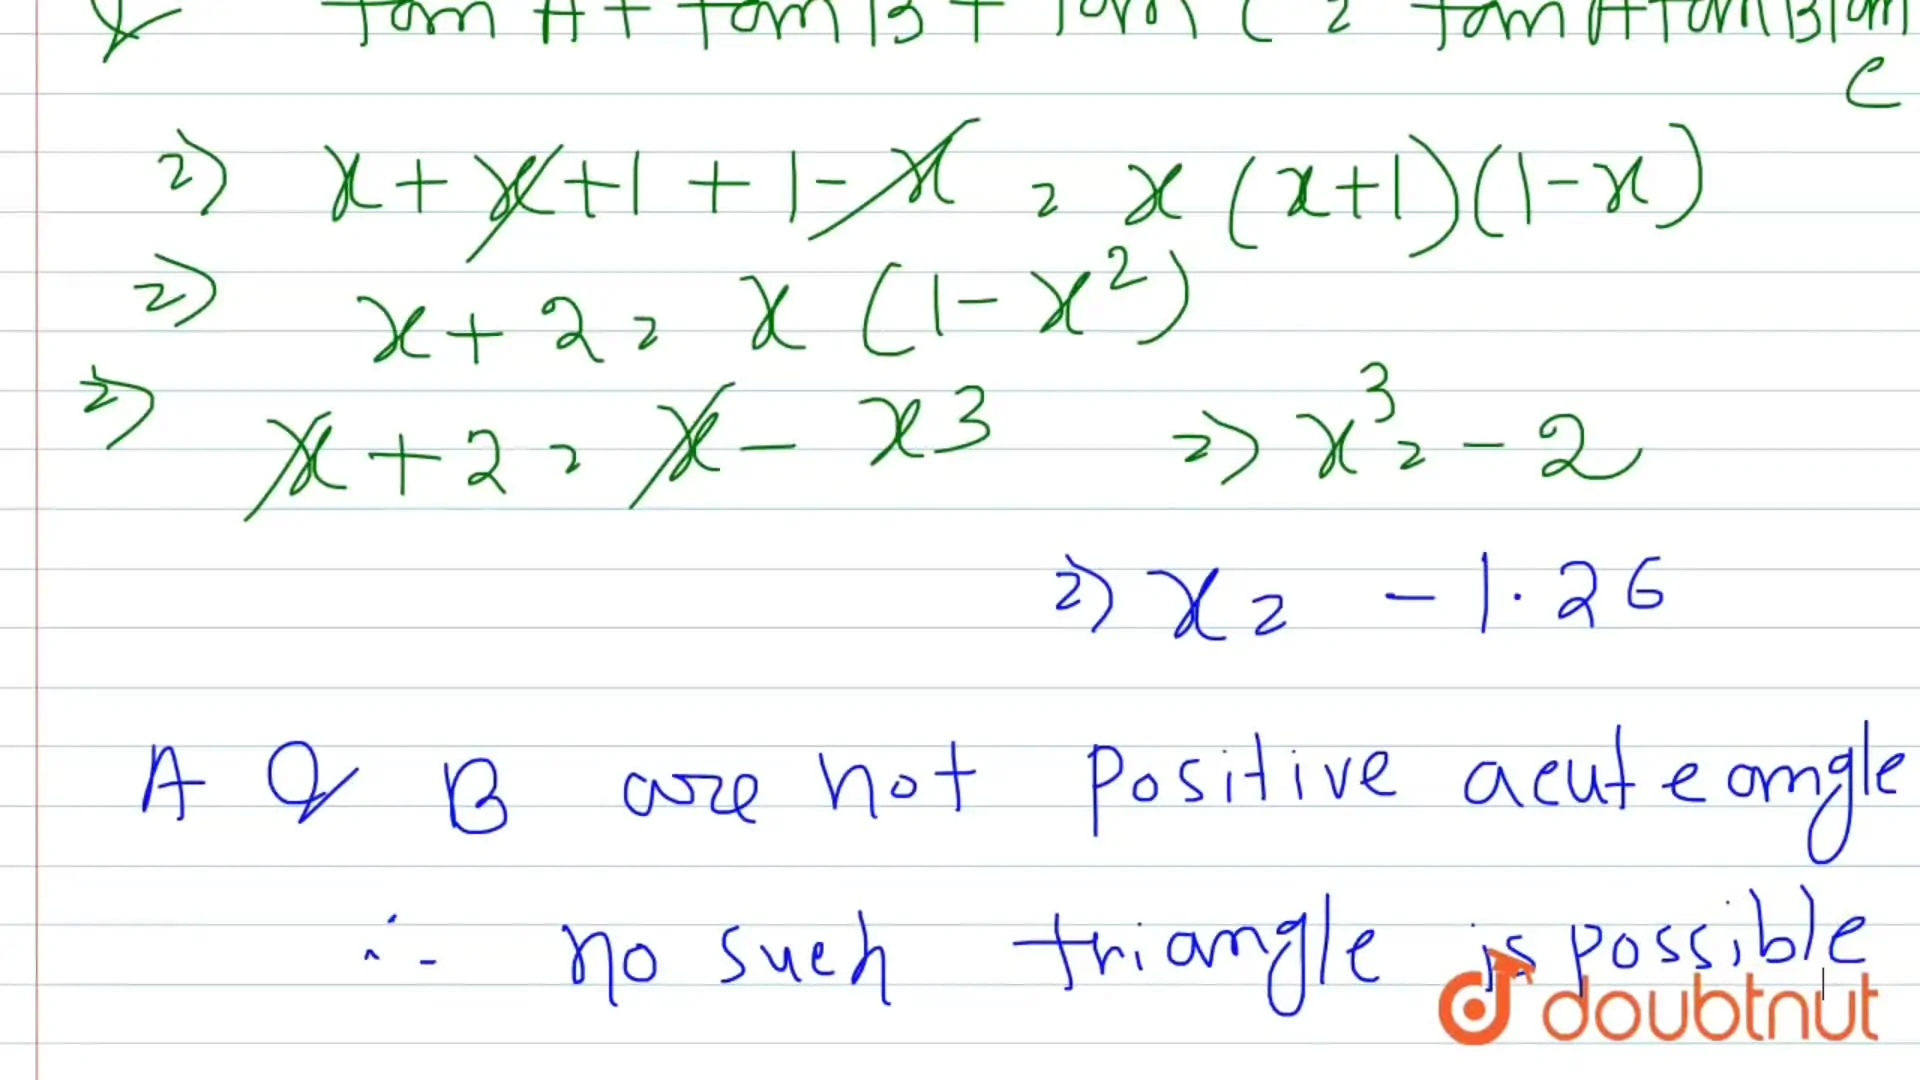 & tan A + tan B + tan C = tan A tan B tan
C
⇒ x + x + 1 + 1 - x = x (x+1) (1-x)
⇒ x + 2 = x (1 - x²)
⇒ x + 2 = x - x3 ⇒ x³ = -2
⇒ x = -1.26
A & B are not positive acute angle
∴ no such triangle is possible
doubtnut